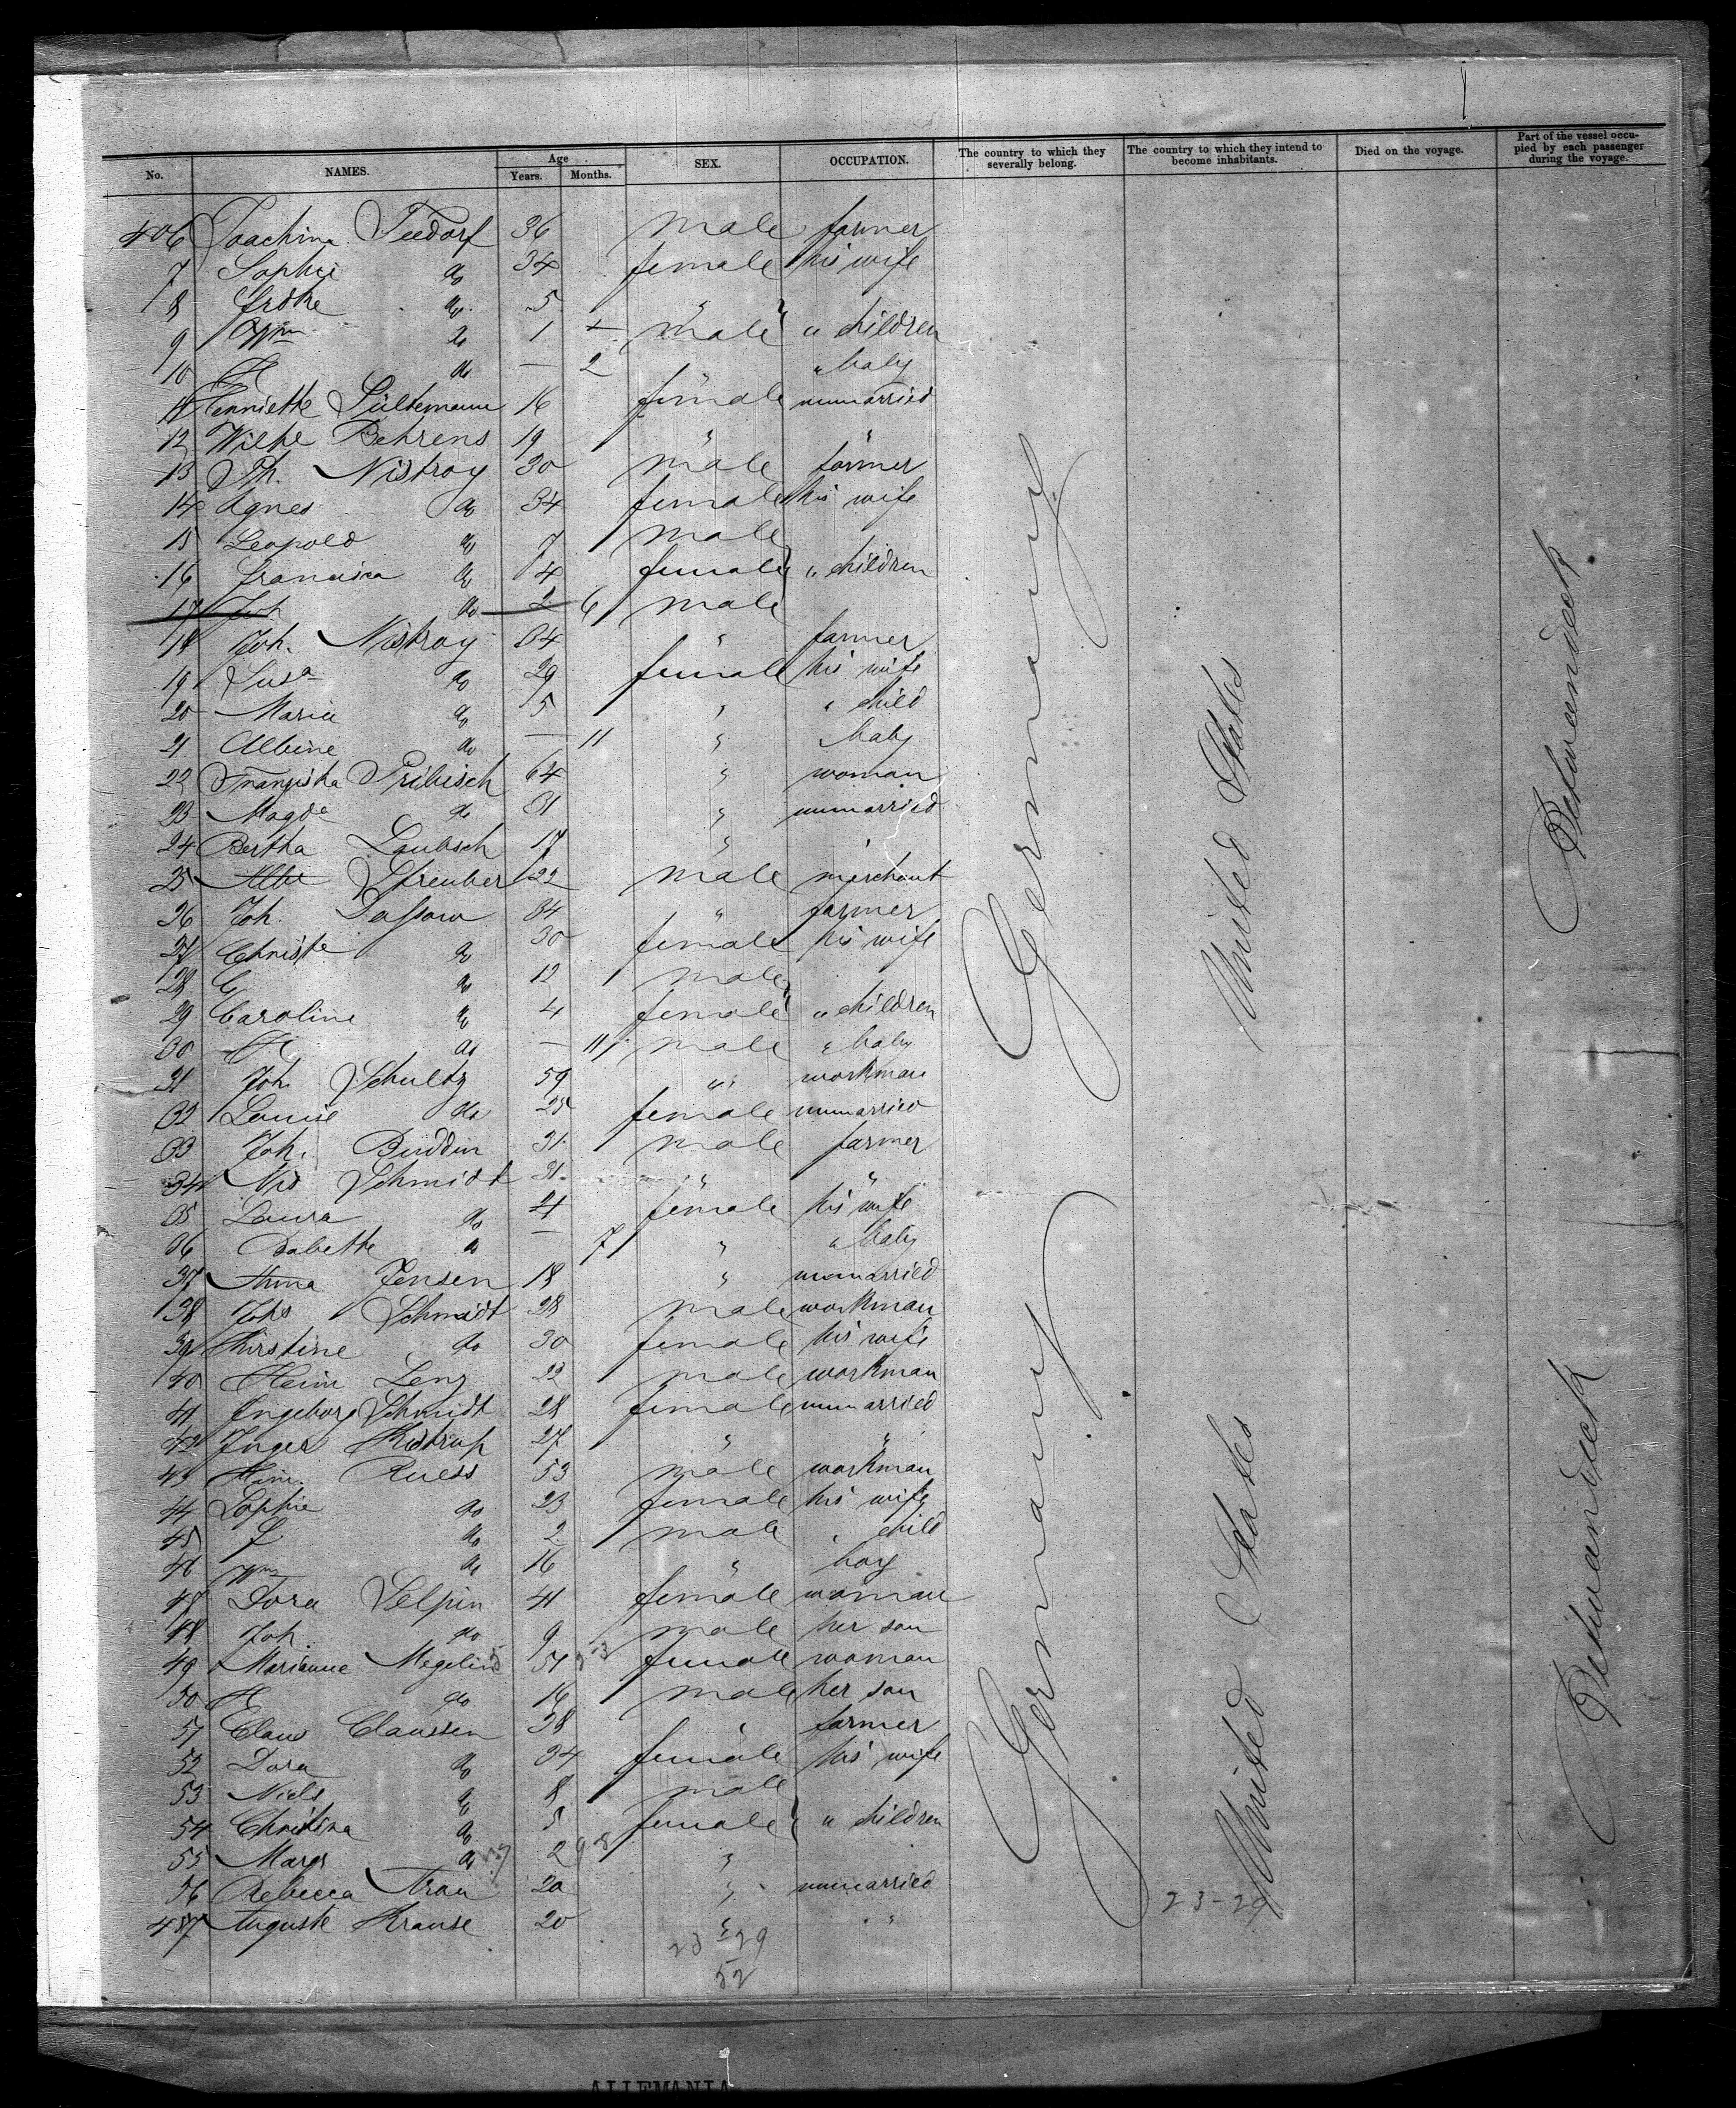 No. NAMES. Age Years. Months. SEX. OCCUPATION. The country to which they severally belong. The country to which they intend to become inhabitants. Died on the voyage. Part of the vessel occupied by each passenger during the voyage.
406 Joachim Teedorf 36 male farmer
7 Sophie do 34 female his wife
8 do 5 "
9 Wm do 1 male " children
10 H do — 2 " " baby
11 Henriette Sültemann 16 female unmarried
12 Wilhe Behrens 19 " "
13 Ph. Nistroy 30 male farmer
14 Agnes do 34 female his wife
15 Leopold do 7 male
16 Francisca do 4 female " children
17 Joh do 2 6 male
18 Joh. Nistroy 34 " farmer
19 Susa do 29 female his wife
20 Maria do 5 " " child
21 Albine do — 11 " baby
22 Franziska Pribisch 64 " woman
23 Magde do 31 " unmarried
24 Bertha Laubsch 17 " "
25 Streuber 22 male merchant
26 Joh. Dassow 34 " farmer
27 Christe do 30 female his wife
28 do 12 male
29 Caroline do 4 female " children
30 H do — 11 male " baby
31 Joh. Schultz 59 " workman
32 Louise do 25 female unmarried
33 Joh. Buddin 31 male farmer
34 Nis Schmidt 31 " "
35 Laura do 21 female his wife
36 Babette do — 7 " " baby
37 Anna Jensen 18 " unmarried
38 Johs Schmidt 28 male workman
39 Kirstine do 30 female his wife
40 Heim Lenz 22 male workman
41 Ingeborg Schmidt 28 female unmarried
42 Inger Kistrup 27 " "
43 Heim. Ruess 53 male workman
44 Sophie do 23 female his wife
45 do 2 male " child
46 Wm do 16 " boy
47 Dora Selpin 41 female woman
48 Joh. do 9 male her son
49 Marianne Megelin 51 female woman
50 H do 16 male her son
51 Claus Claussen 38 " farmer
52 Dora do 34 female his wife
53 Niels do 8 male
54 Christina do 5 female " children
55 Margr do 2 "
56 Rebecca 20 " unmarried
457 Auguste Krause 20 " "
Germany
United States
Betweendeck
Germany
United States
Betweendeck
23-29
23 29
52
ALLEMANIA